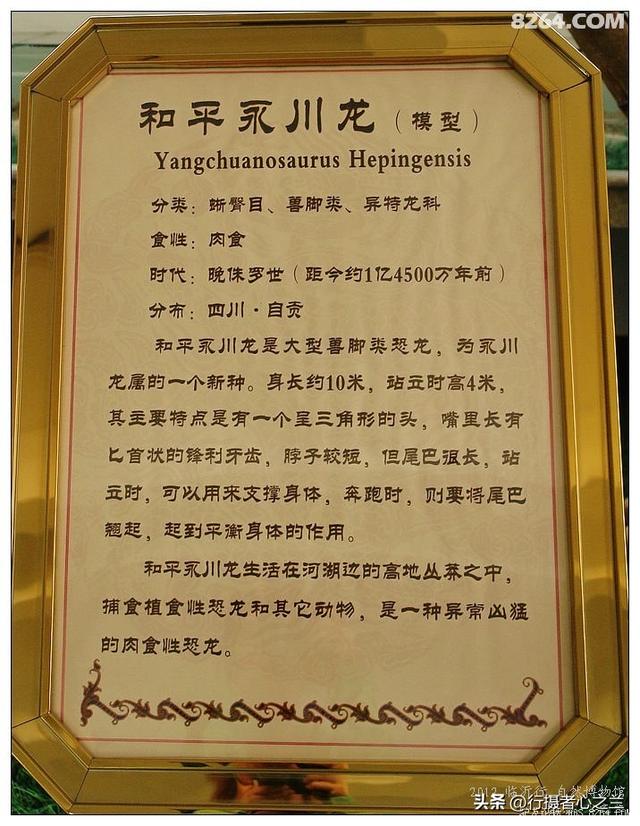 8264.COM
和平永川龙（模型）
Yangchuanosaurus Hepingensis
分类：蜥臀目、兽脚类、异特龙科
食性：肉食
时代：晚侏罗世（距今约1亿4500万年前）
分布：四川·自贡
和平永川龙是大型兽脚类恐龙，为永川
龙属的一个新种。身长约10米，站立时高4米，
其主要特点是有一个呈三角形的头，嘴里长有
匕首状的锋利牙齿，脖子较短，但尾巴很长，站
立时，可以用来支撑身体，奔跑时，则要将尾巴
翘起，起到平衡身体的作用。
和平永川龙生活在河湖边的高地丛莽之中，
捕食植食性恐龙和其它动物，是一种异常凶猛
的肉食性恐龙。
2012 临沂行 自然博物馆
头条@行摄者心之兰